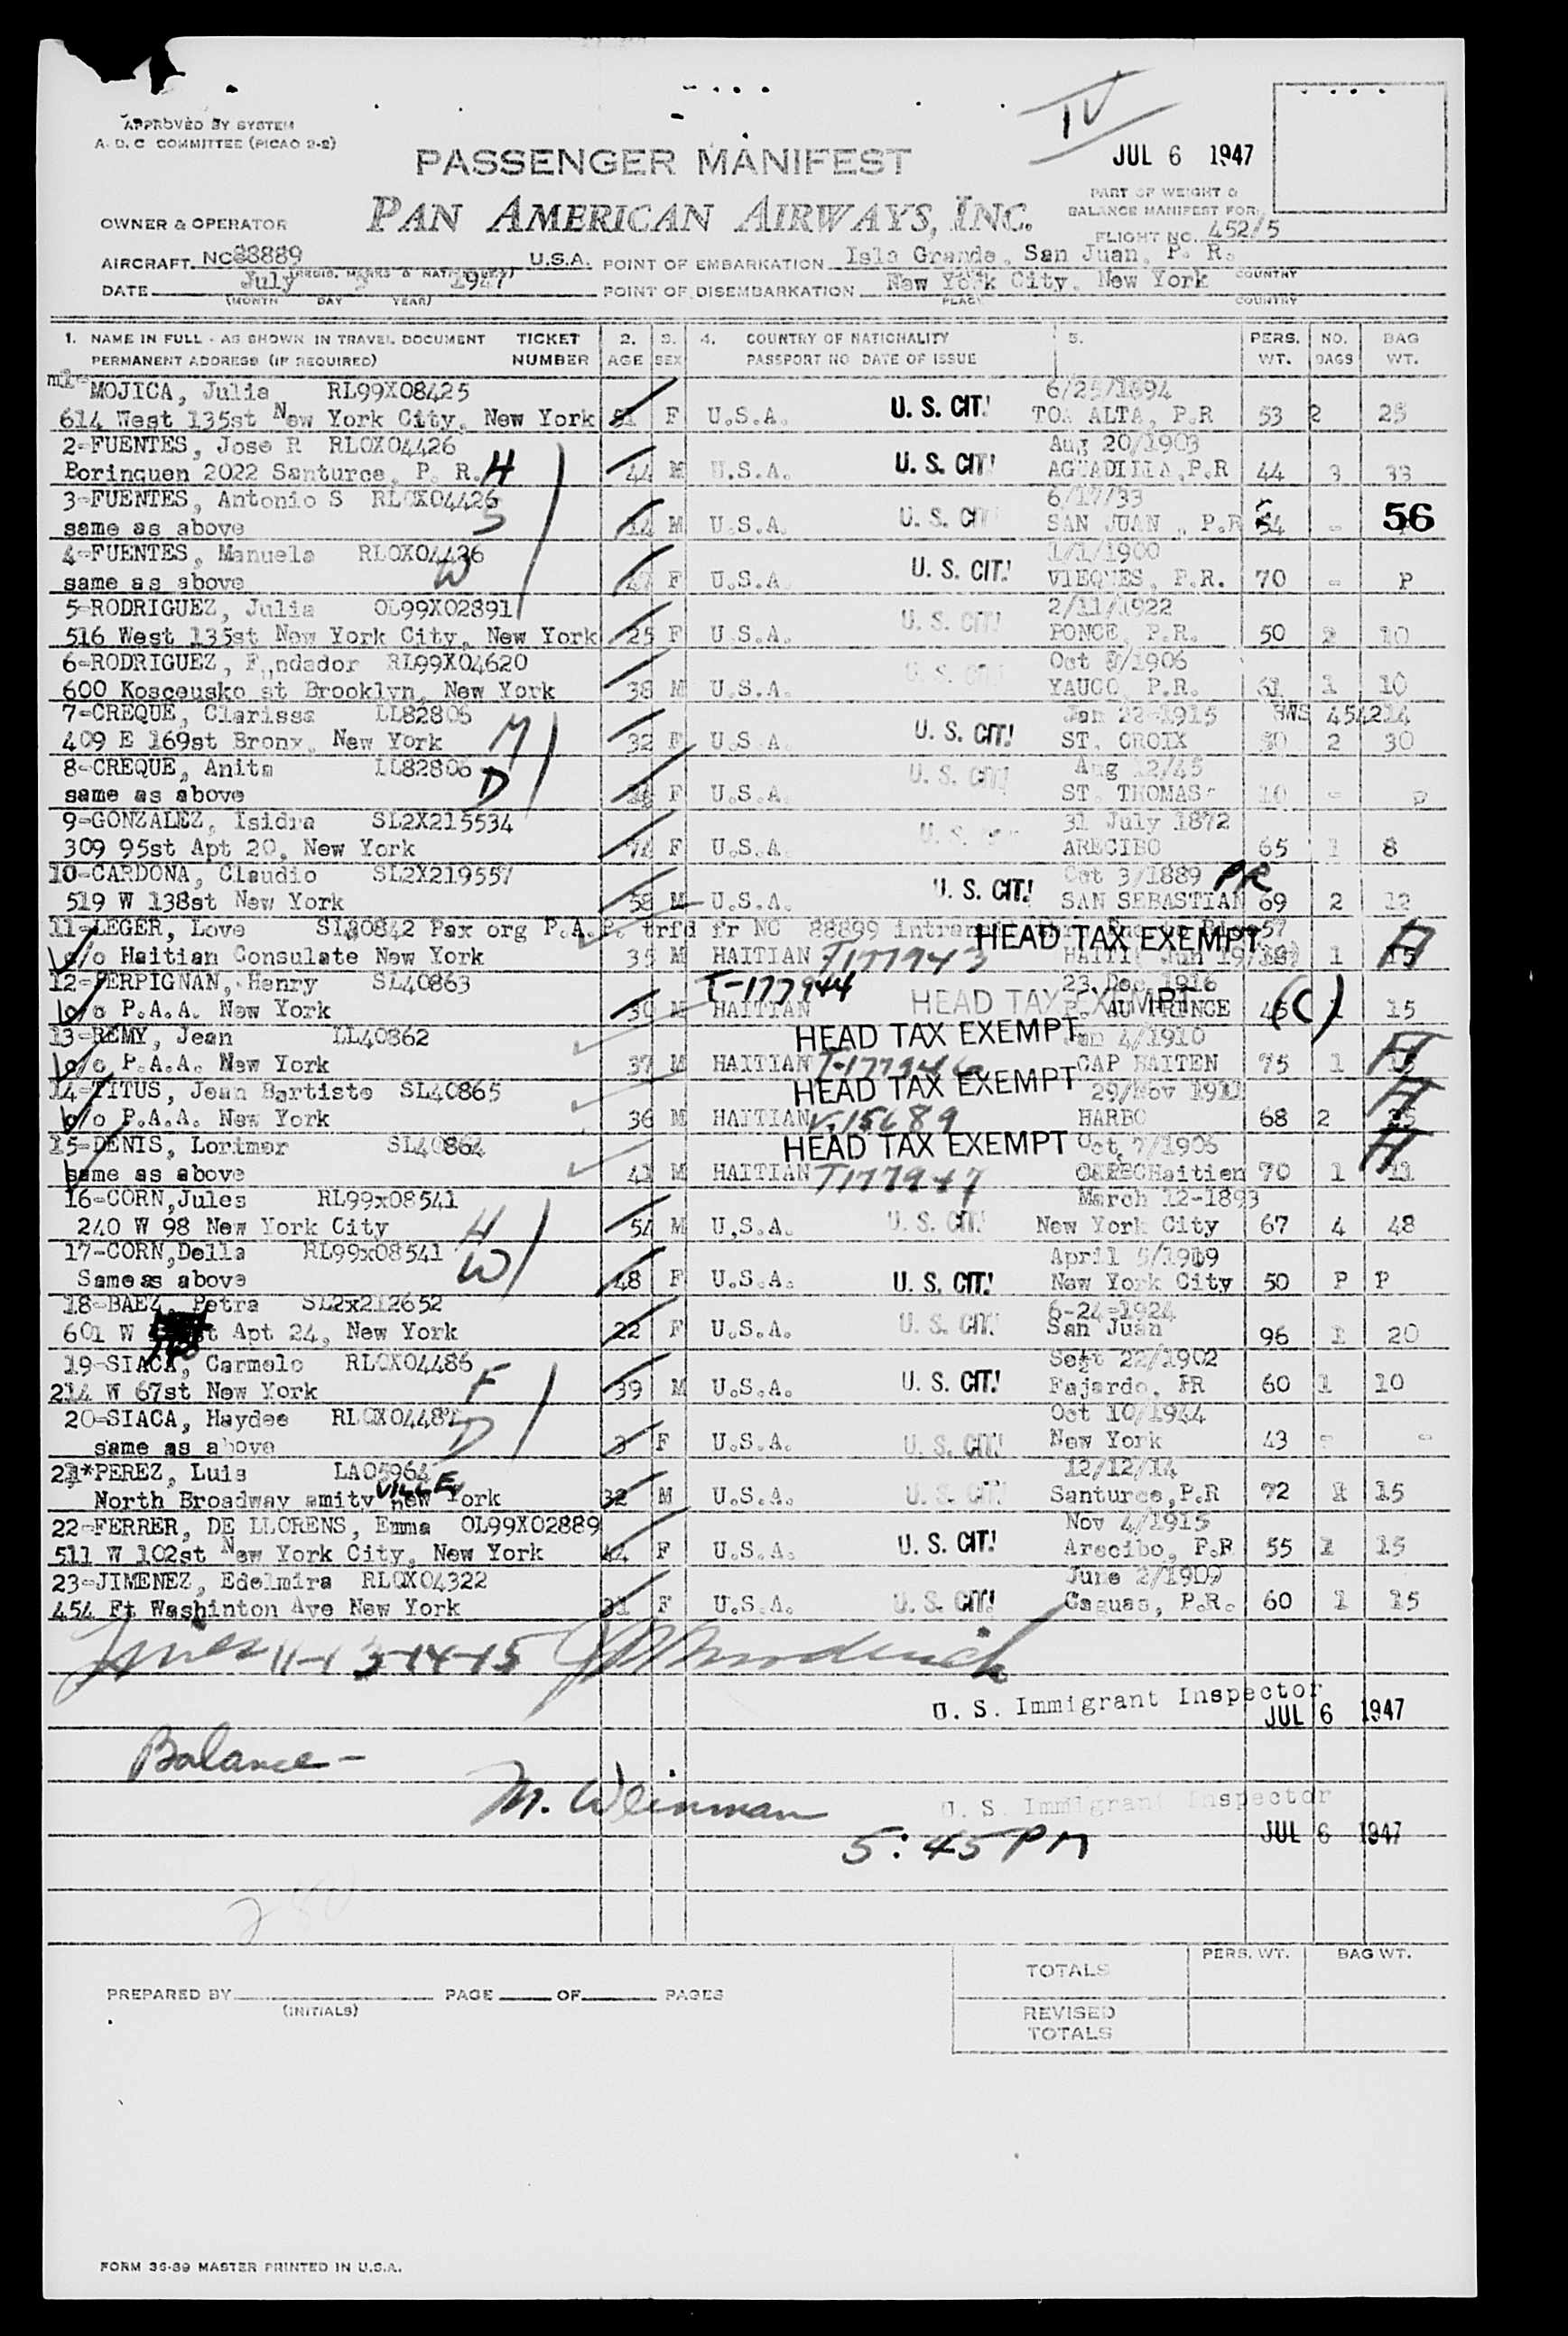 APPROVED BY SYSTEM
A. D. C COMMITTEE (PICAO 2-2)
IV
JUL 6 1947
PASSENGER MANIFEST
PAN AMERICAN AIRWAYS, INC.
PART OF WEIGHT &
BALANCE MANIFEST FOR
OWNER & OPERATOR
FLIGHT NO. 452/5
AIRCRAFT NC88889 U.S.A. POINT OF EMBARKATION Isla Grande, San Juan, P. R.
(REGIS. MARKS & NATIONALITY) COUNTRY
DATE July 1947 POINT OF DISEMBARKATION New York City, New York
(MONTH DAY YEAR) PLACE COUNTRY
1. NAME IN FULL - AS SHOWN IN TRAVEL DOCUMENT TICKET 2. 3. 4. COUNTRY OF NATIONALITY 5. PERS. NO. BAG
PERMANENT ADDRESS (IF REQUIRED) NUMBER AGE SEX PASSPORT NO DATE OF ISSUE WT. BAGS WT.
MOJICA, Julia RL99X08425 6/25/1894
614 West 135st New York City, New York F U.S.A. U. S. CIT! TOA ALTA, P.R 53 2 25
2-FUENTES, Jose R RLOX04426 Aug 20/1903
Borinquen 2022 Santurce, P. R. H 44 M U.S.A. U. S. CIT! AGUADILLA,P.R 44 3 33
3-FUENTES, Antonio S RLOX04426 6/17/33
same as above S 14 M U.S.A. U. S. CIT! SAN JUAN , P.R 54 - 56
4-FUENTES, Manuela RLOX04426 1/1/1900
same as above W 47 F U.S.A. U. S. CIT! VIEQUES, P.R. 70 - P
5-RODRIGUEZ, Julia OL99X02891 2/11/1922
516 West 135st New York City, New York 25 F U.S.A. U. S. CIT! PONCE, P.R. 50 2 10
6-RODRIGUEZ, Fundador RL99X04620 Oct /1906
600 Koscousko st Brooklyn, New York 38 M U.S.A. U. S. CIT! YAUCO, P.R. 61 1 10
7-CREQUE, Clarissa LL82806 Jan 22-1915 454214
409 E 169st Bronx, New York M 32 F U.S.A. U. S. CIT! ST. CROIX 2 30
8-CREQUE, Anita LL82806 Aug 12/45
same as above D F U.S.A. U. S. CIT! ST. THOMAS 10 - P
9-GONZALEZ, Isidra SL2X215534 31 July 1872
309 95st Apt 20, New York 74 F U.S.A. U. S. ARECIBO 65 1 8
10-CARDONA, Claudio SL2X219557 Oct 3/1889 PR
519 W 138st New York 58 M U.S.A. U. S. CIT! SAN SEBASTIAN 69 2 12
11-LEGER, Love SL30842 Pax org P.A.P. trfd fr NC 88899 HEAD TAX EXEMPT 57
c/o Haitian Consulate New York 35 M HAITIAN T177943 HAITI Jun 19/ 1 15 H
12-PERPIGNAN, Henry SL40863 T-177944 23 Dec 1916
c/o P.A.A. New York 30 M HAITIAN HEAD TAX EXEMPT P. AU PRINCE 45 (C) 1 15
13-REMY, Jean LL40862 HEAD TAX EXEMPT Jan 4/1910
c/o P.A.A. New York 37 M HAITIAN T-177946 CAP HAITEN 75 1 H
14-TITUS, Jean Bartiste SL40865 HEAD TAX EXEMPT 29/Nov 1911
c/o P.A.A. New York 36 M HAITIAN V.15689 HARBO 68 2 H
15-DENIS, Lorimer SL40864 HEAD TAX EXEMPT Oct, 7/1905
same as above 41 M HAITIAN T177947 Haitien 70 1 11 H
16-CORN,Jules RL99x08541 March 12-1893
240 W 98 New York City H 54 M U.S.A. U. S. CIT! New York City 67 4 48
17-CORN,Della RL99x08541 April 5/1909
Same as above W 48 F U.S.A. U. S. CIT! New York City 50 P P
18-BAEZ, Petra SL2x212652 6-24-1924
601 W st Apt 24, New York 22 F U.S.A. U. S. CIT! San Juan 96 1 20
19-SIACA, Carmelo RLOX04486 Sept 22/1902
214 W 67st New York F 39 M U.S.A. U. S. CIT! Fajardo, PR 60 1 10
20-SIACA, Haydee RLOX04487 Oct 10/1944
same as above D 3 F U.S.A. U. S. CIT! New York 43 - -
21*PEREZ, Luis LA05964 12/12/14
North Broadway amity VILLE New York 32 M U.S.A. U. S. CIT! Santurce,P.R 72 1 15
22-FERRER, DE LLORENS, Emma OL99X02889 Nov 4/1915
511 W 102st New York City, New York 44 F U.S.A. U. S. CIT! Arecibo, P.R 55 1 15
23-JIMENEZ, Edelmira RLOX04322 June 2/1909
454 Ft Washinton Ave New York 31 F U.S.A. U. S. CIT! Caguas, P.R. 60 1 15
Lines 11-13-14-15
U. S. Immigrant Inspector
JUL 6 1947
Balance-
M. Weinman U. S. Immigrant Inspector
5:45 PM JUL 6 1947
PERS. WT. BAG WT.
TOTALS
PREPARED BY PAGE OF PAGES
(INITIALS)
REVISED
TOTALS
FORM 36-89 MASTER PRINTED IN U.S.A.